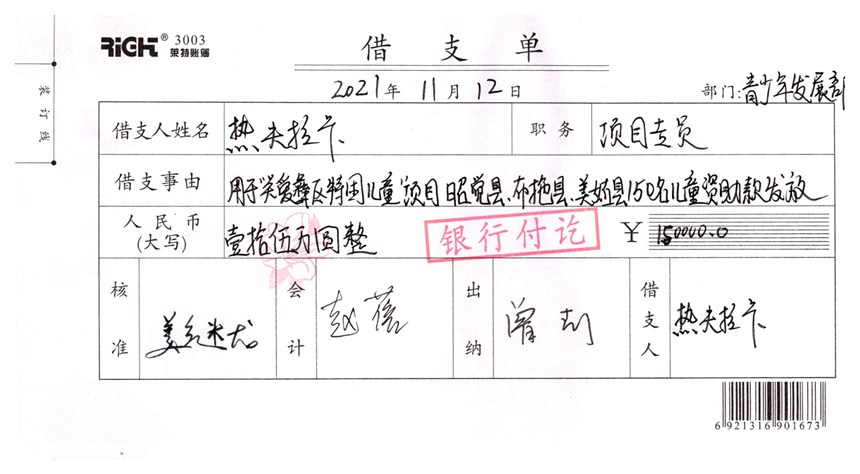 RiGHT® 3003
莱特账簿
借 支 单
2021年 11月 12日
部门:青少年发展部
装订线
借支人姓名 热夫拉卡 职 务 项目专员
借支事由 用于“关爱彝区特困儿童”项目 昭觉县、布拖县、美姑县150名儿童资助款发放
人 民 币
(大写) 壹拾伍万圆整 银行付讫 ¥ 150000.0
核准 会计 赵蓓 出纳 曾 借支人 热夫拉卡
6 921316 901673